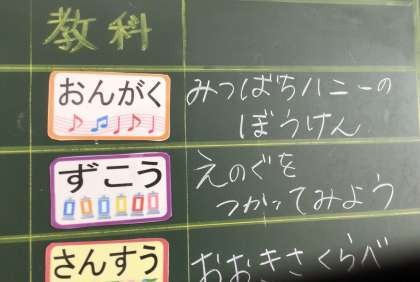 教科
おんがく
みつばちハニーの
ぼうけん
ずこう
えのぐを
つかってみよう
さんすう
おおきさくらべ